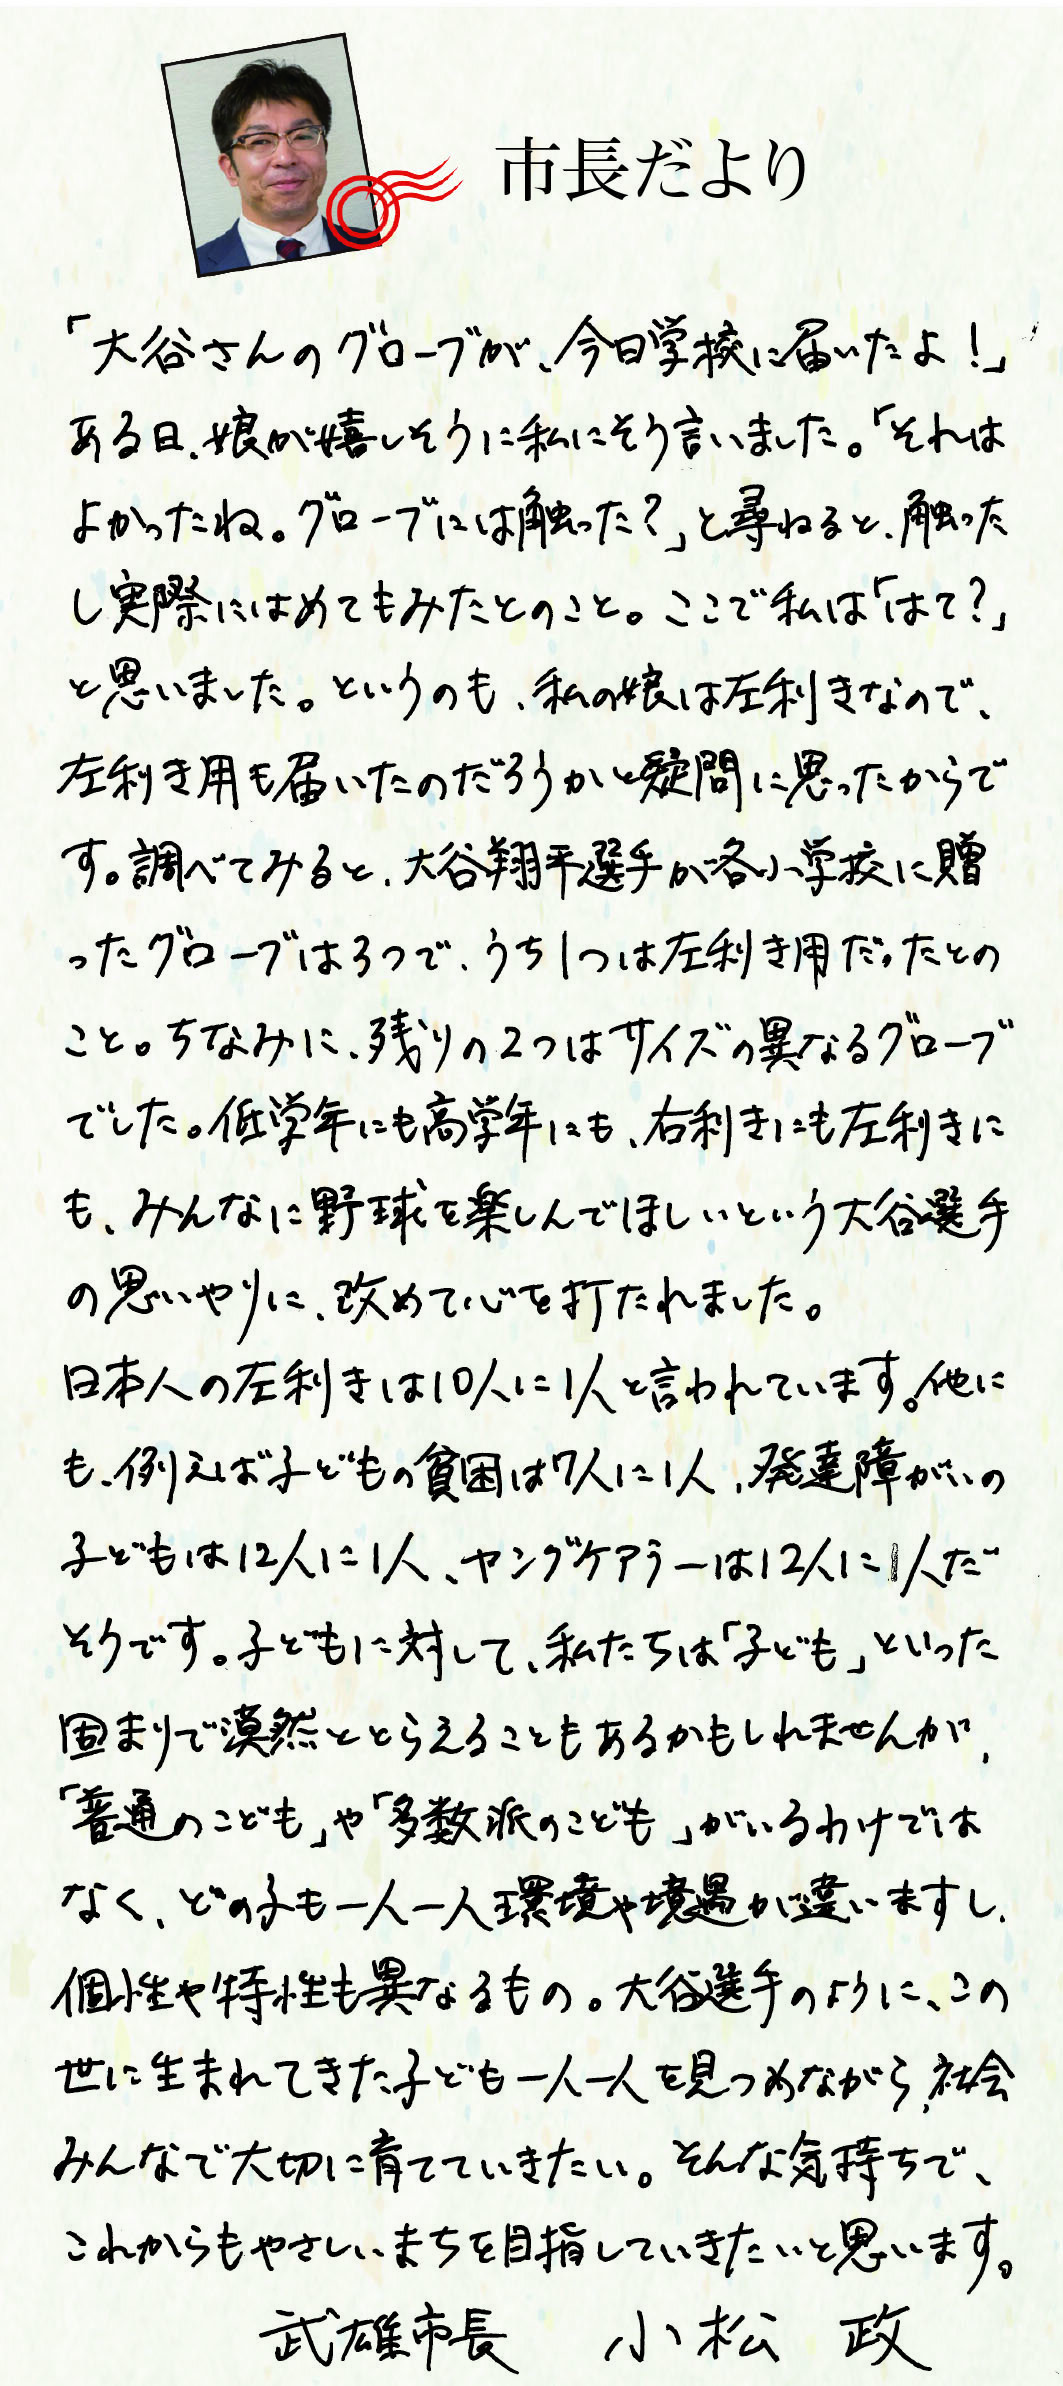 市長だより
「大谷さんのグローブが、今日学校に届いたよ！」
ある日、娘が嬉しそうに私にそう言いました。「それは
よかったね。グローブには触った？」と尋ねると、触った
し実際にはめてもみたとのこと。ここで私は「はて？」
と思いました。というのも、私の娘は左利きなので、
左利き用も届いたのだろうかと疑問に思ったからで
す。調べてみると、大谷翔平選手が各小学校に贈
ったグローブは3つで、うち1つは左利き用だったとの
こと。ちなみに、残りの2つはサイズの異なるグローブ
でした。低学年にも高学年にも、右利きにも左利きに
も、みんなに野球を楽しんでほしいという大谷選手
の思いやりに、改めて心を打たれました。
日本人の左利きは10人に1人と言われています。他に
も、例えば子どもの貧困は7人に1人、発達障がいの
子どもは12人に1人、ヤングケアラーは12人に1人だ
そうです。子どもに対して、私たちは「子ども」といった
固まりで漠然ととらえることもあるかもしれませんが、
「普通のこども」や「多数派のこども」がいるわけでは
なく、どの子も一人一人環境や境遇が違いますし、
個性や特性も異なるもの。大谷選手のように、この
世に生まれてきた子ども一人一人を見つめながら、社会
みんなで大切に育てていきたい。そんな気持ちで、
これからもやさしいまちを目指していきたいと思います。
武雄市長　小松　政